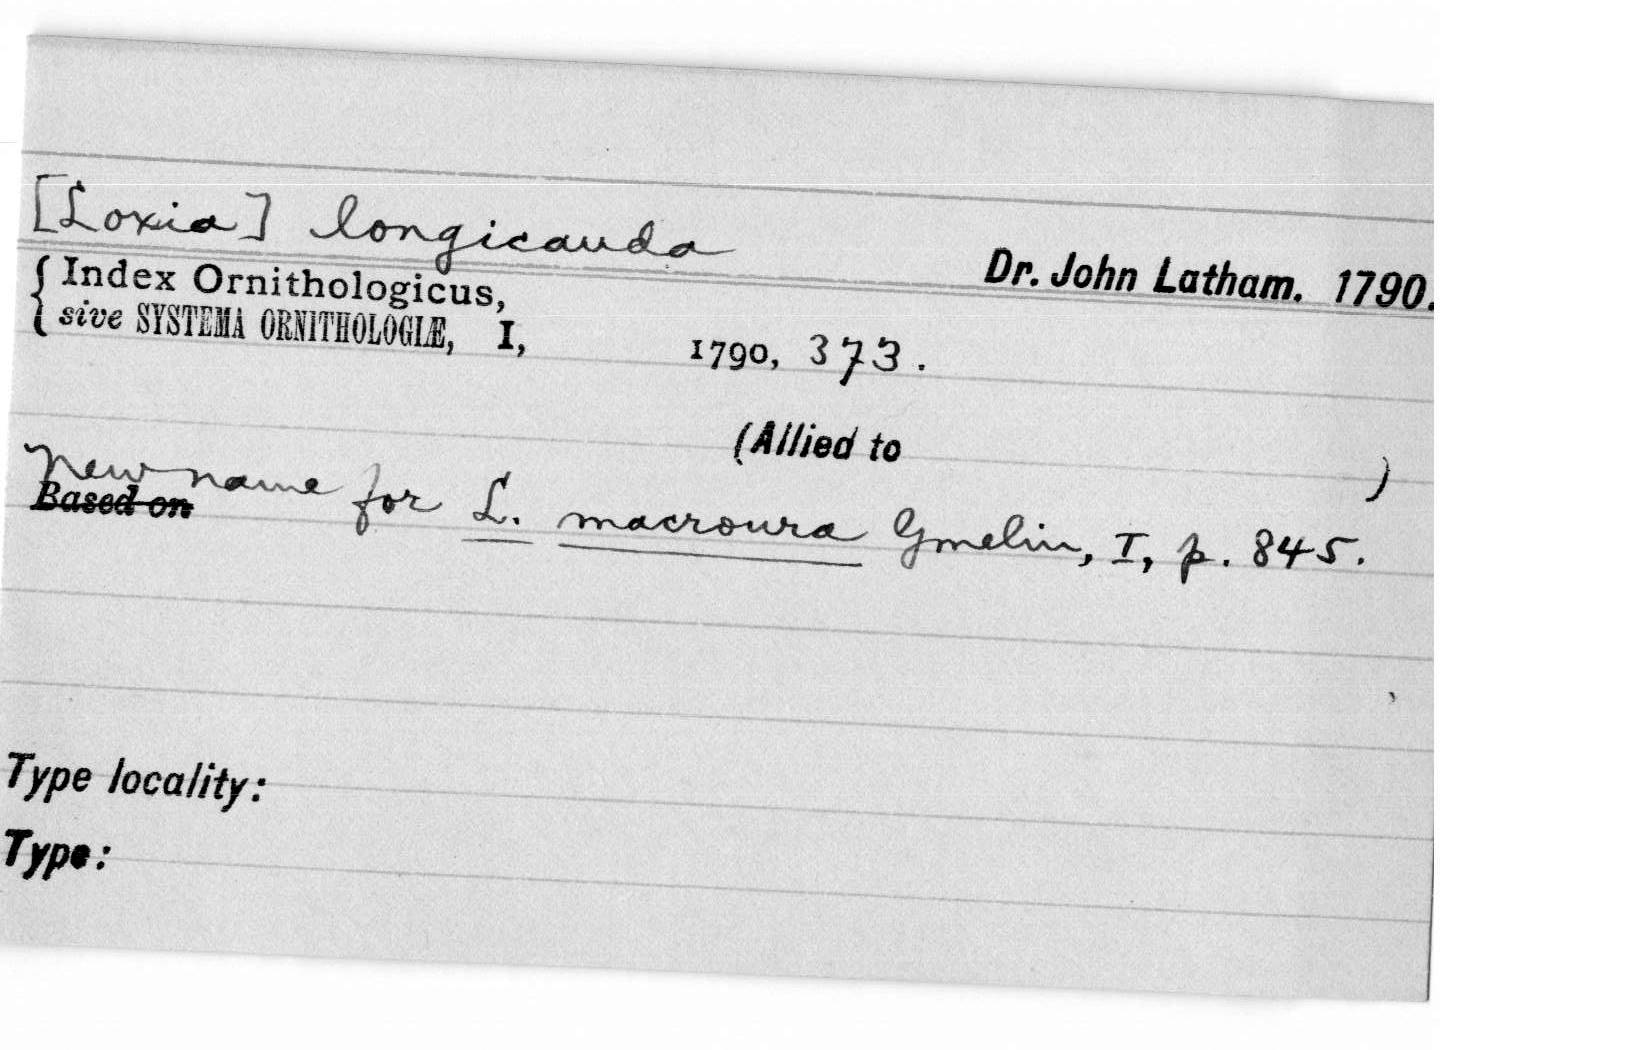 [Loxia] longicauda
Dr. John Latham. 1790.
{ Index Ornithologicus,
sive SYSTEMA ORNITHOLOGIÆ, I, 1790, 373.
(Allied to )
New name for L. macroura Gmelin, I, p. 845.
Based on
Type locality:
Type: